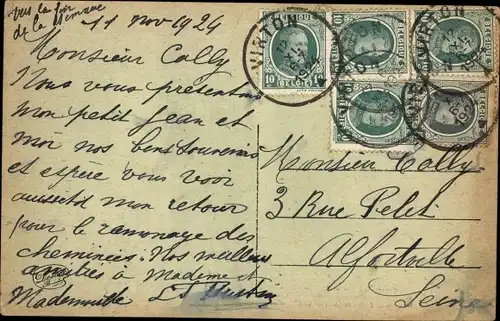 vers la fin
de la semaine
11 nov 1924
Monsieur Colly
Nous vous présentons
mon petit Jean et
moi nos bons souvenirs
et espère vous voir
aussitôt mon retour
pour le ramonage des
cheminées. Nos meilleurs
amitiés à Madame et
Mademoiselle
Monsieur Colly
3 Rue Petit
Alfortville
Seine
VIRTON
BELGIQUE
10